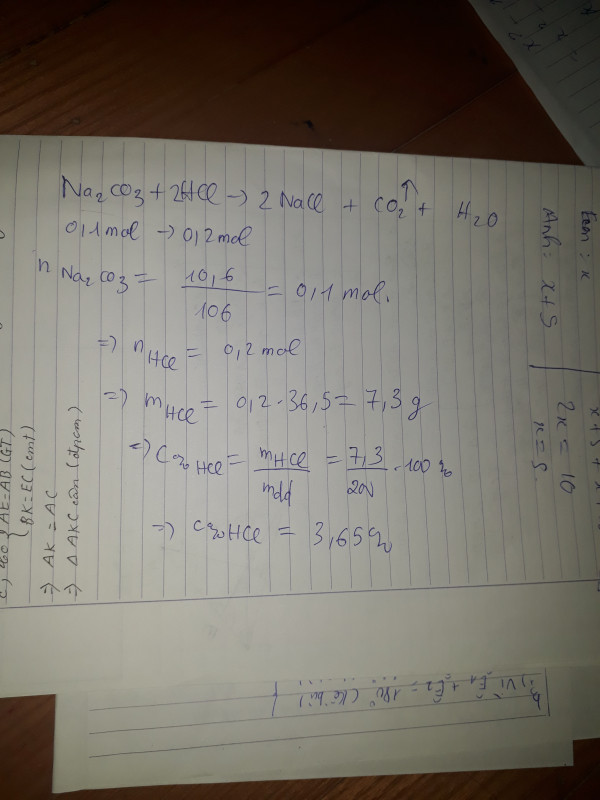 Na₂CO₃ + 2HCl → 2 NaCl + CO₂↑ + H₂O
0,1 mol → 0,2 mol
n Na₂CO₃ = 10,6 / 106 = 0,1 mol.
=> n HCl = 0,2 mol
=> m HCl = 0,2 . 36,5 = 7,3 g
=> C% HCl = mHCl / mdd = 7,3 / 200 . 100 %
=> C% HCl = 3,65 %
Em : x
Anh : x + 5
2x = 10
x = 5
AE = AB (GT)
BK = EC (cmt)
=> AK = AC
=> Δ AKC cân (đpcm)
Vì Ê₁ + Ê₂ = 180° (kề bù)